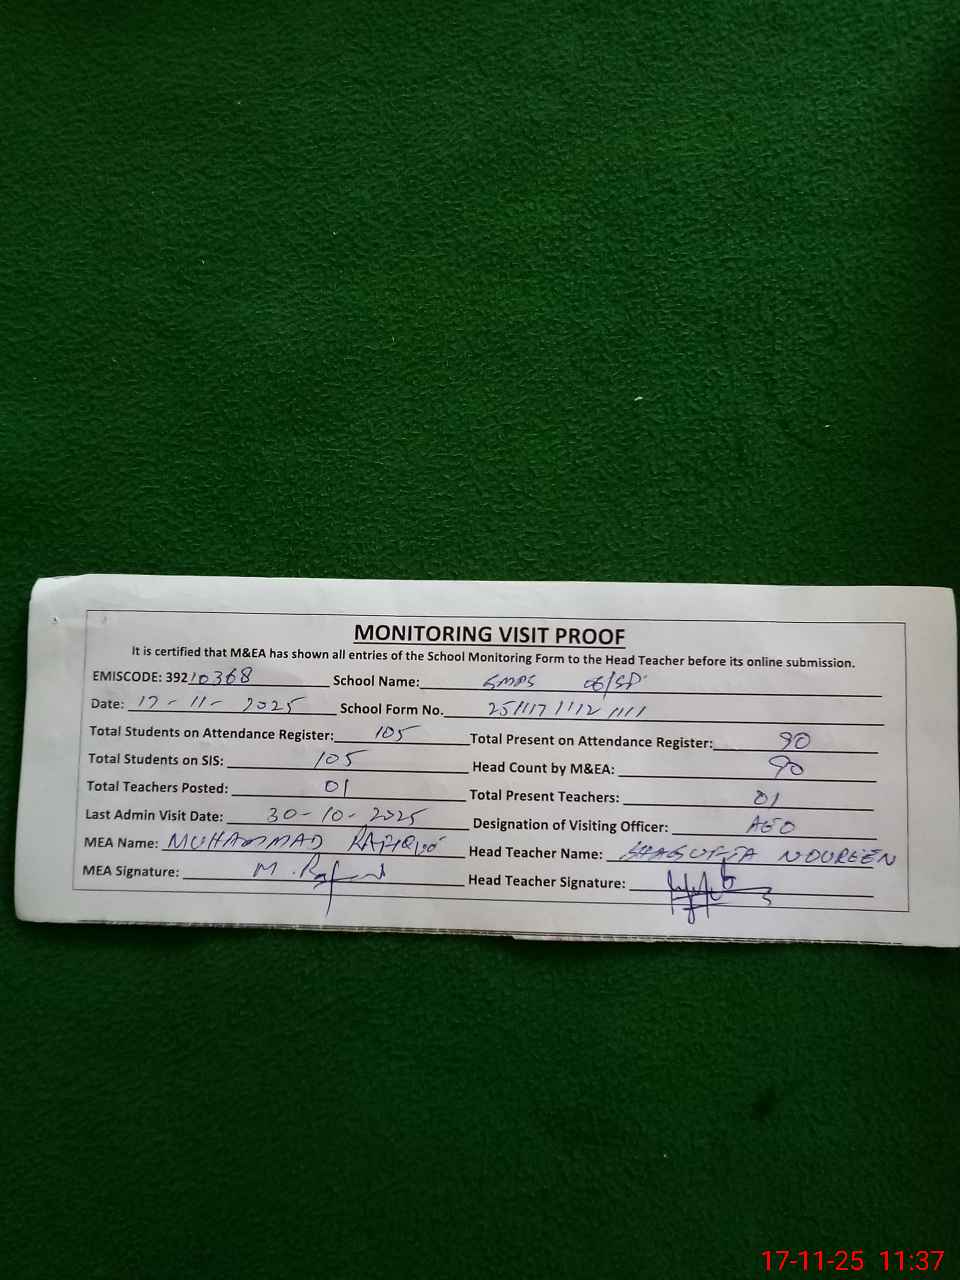 MONITORING VISIT PROOF
It is certified that M&EA has shown all entries of the School Monitoring Form to the Head Teacher before its online submission.
EMISCODE: 39210368 School Name: GMPS 06/SP
Date: 17-11-2025 School Form No. 251117 1112 1111
Total Students on Attendance Register: 105 Total Present on Attendance Register: 90
Total Students on SIS: 105 Head Count by M&EA: 90
Total Teachers Posted: 01 Total Present Teachers: 01
Last Admin Visit Date: 30-10-2025 Designation of Visiting Officer: AEO
MEA Name: MUHAMMAD Head Teacher Name: SHAGUFTA NOUREEN
MEA Signature: Head Teacher Signature:
17-11-25 11:37